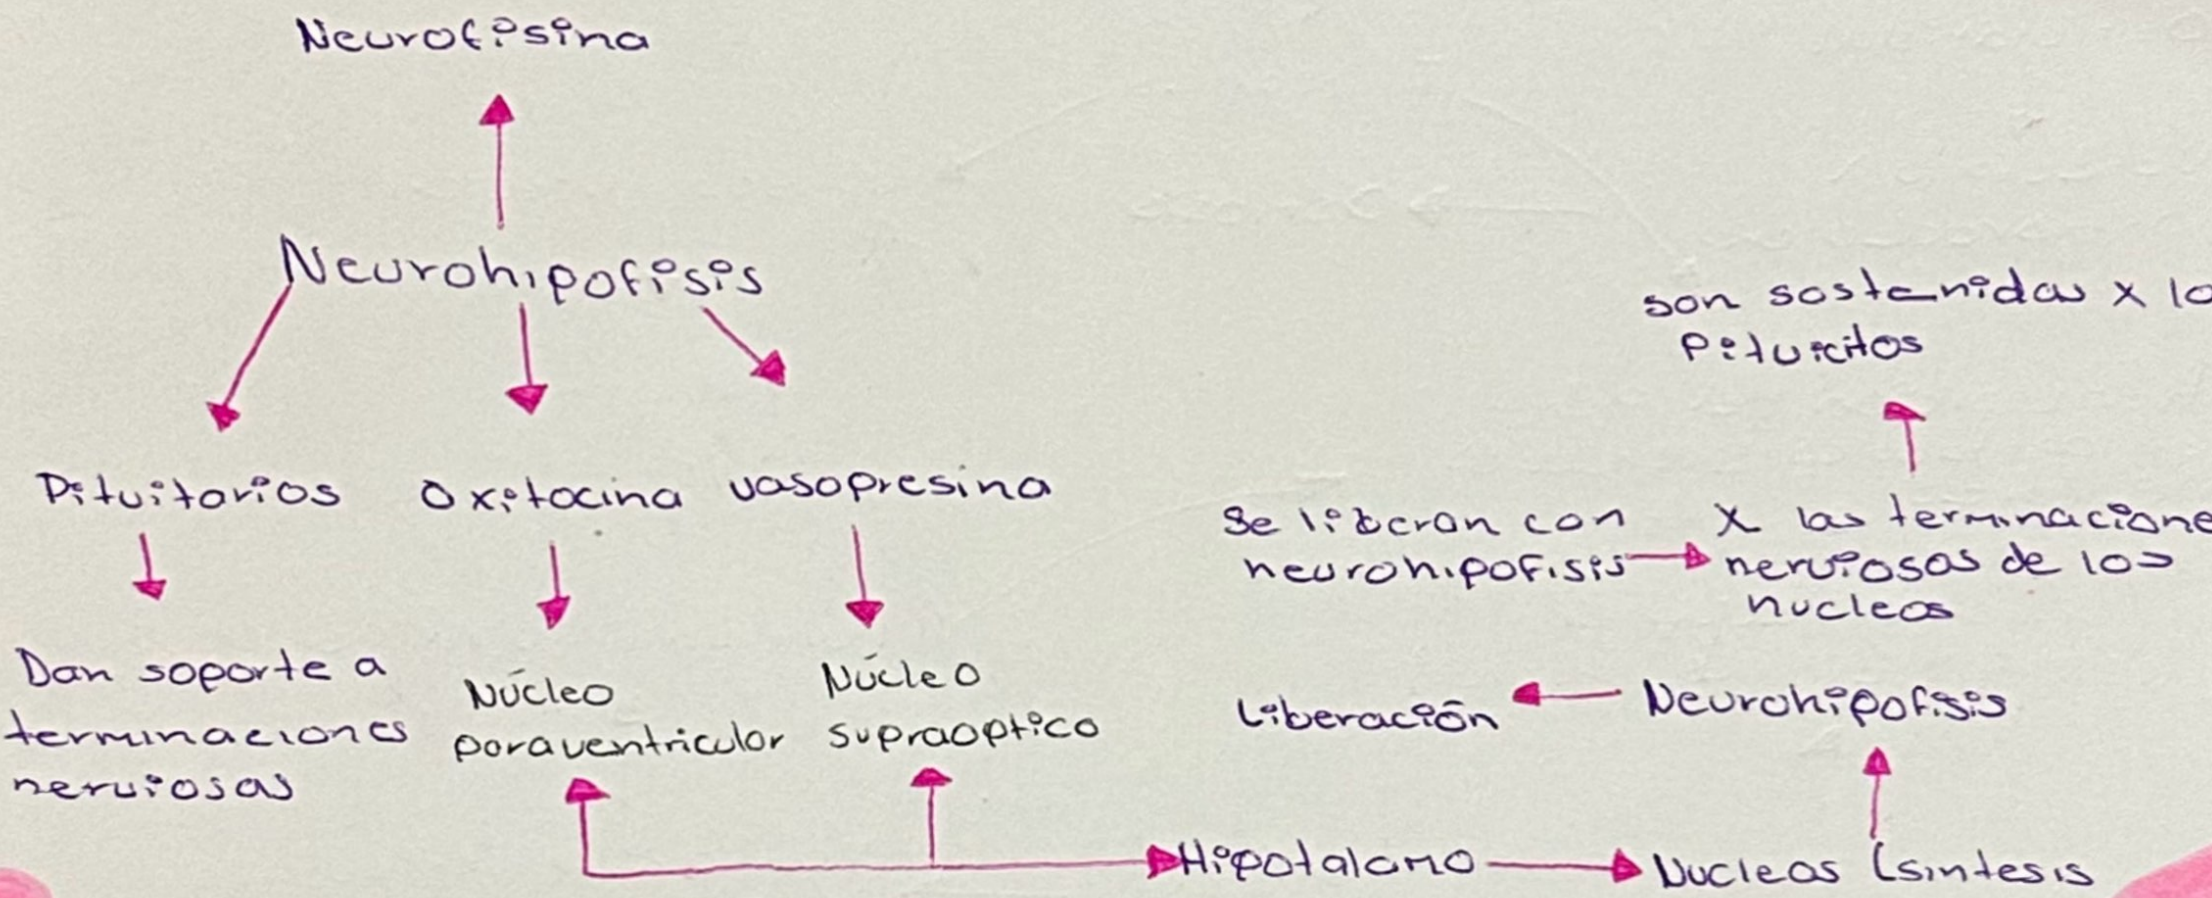 Neurofisina
Neurohipofisis
Pituitarios
Oxitocina
vasopresina
Dan soporte a
terminaciones
nerviosas
Núcleo
paraventricular
Núcleo
supraoptico
Hipotalamo
Nucleos (sintesis
Neurohipofisis
Liberación
Se liberan con
neurohipofisis
X las terminacione
nerviosas de los
nucleos
son sostenidas x lo
Pituicitos